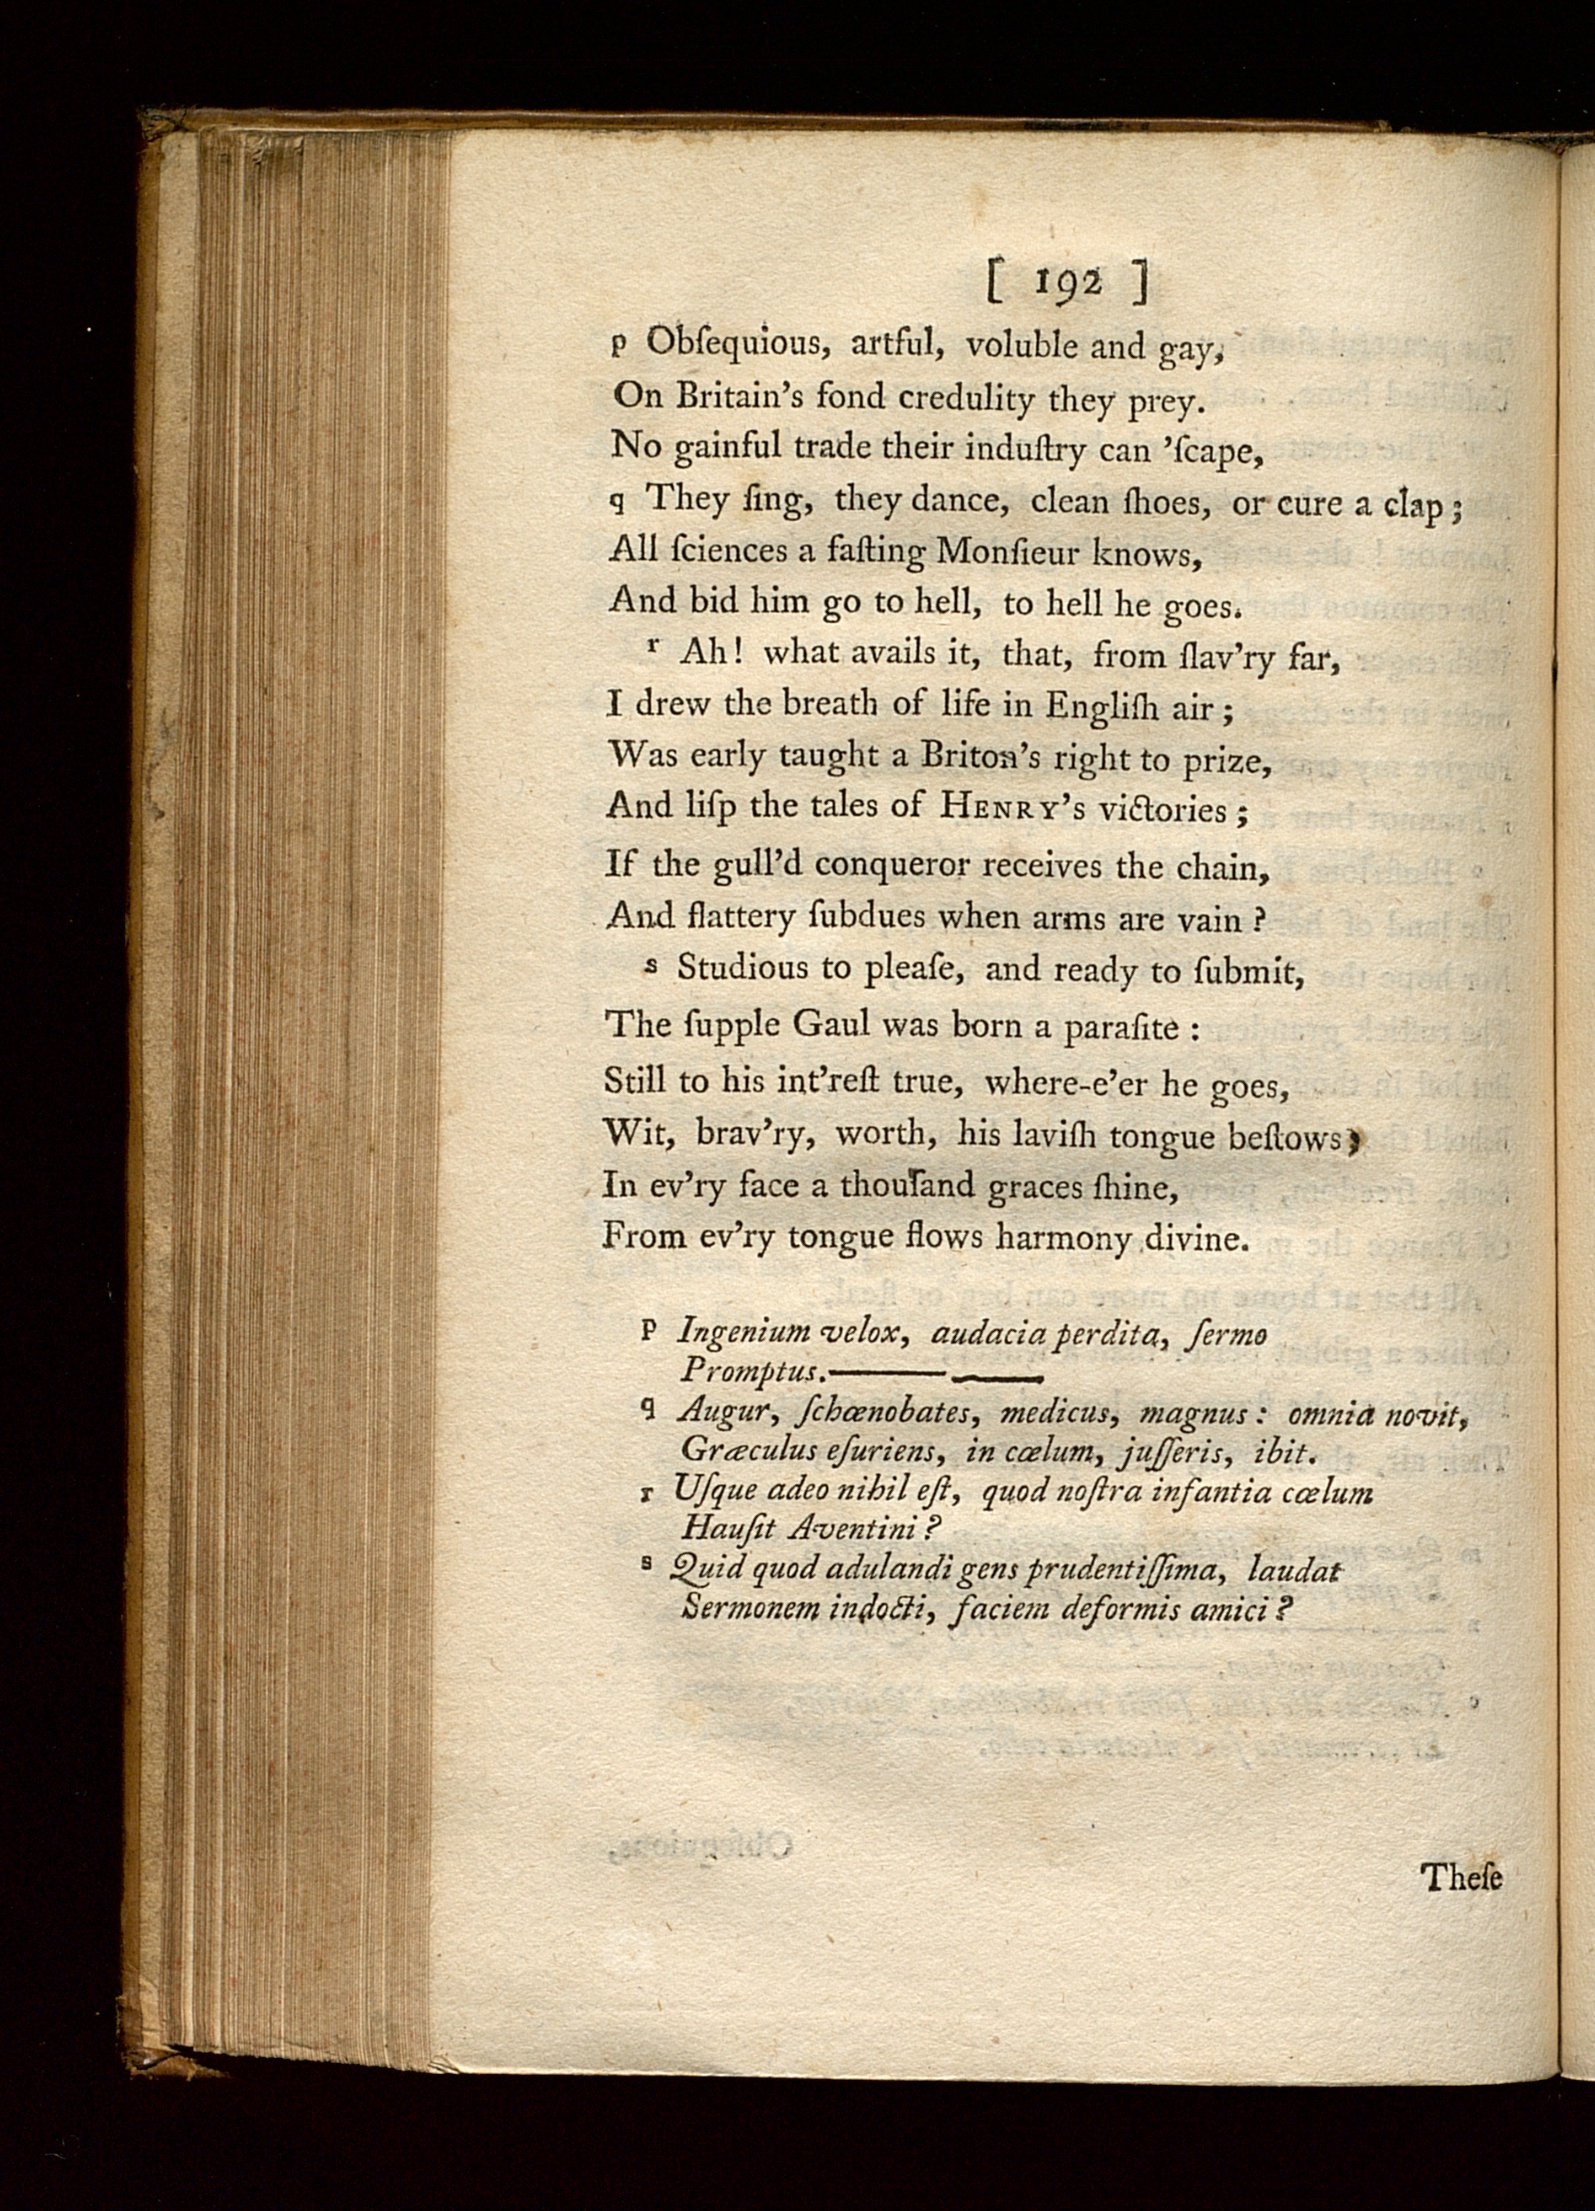 [ 192 ]
p Obſequious, artful, voluble and gay,
On Britain's fond credulity they prey.
No gainful trade their induſtry can 'ſcape,
q They ſing, they dance, clean ſhoes, or cure a clap;
All ſciences a faſting Monſieur knows,
And bid him go to hell, to hell he goes.
r Ah! what avails it, that, from ſlav'ry far,
I drew the breath of life in Engliſh air;
Was early taught a Briton's right to prize,
And liſp the tales of HENRY's victories;
If the gull'd conqueror receives the chain,
And flattery ſubdues when arms are vain?
s Studious to pleaſe, and ready to ſubmit,
The ſupple Gaul was born a paraſite:
Still to his int'reſt true, where-e'er he goes,
Wit, brav'ry, worth, his laviſh tongue beſtows;
In ev'ry face a thouſand graces ſhine,
From ev'ry tongue flows harmony divine.
p Ingenium velox, audacia perdita, ſermo
Promptus.——— ——
q Augur, ſchœnobates, medicus, magnus: omnia novit,
Græculus eſuriens, in cœlum, juſſeris, ibit.
r Uſque adeo nihil eſt, quod noſtra infantia cœlum
Hauſit Aventini?
s Quid quod adulandi gens prudentiſſima, laudat
Sermonem indocti, faciem deformis amici?
Theſe